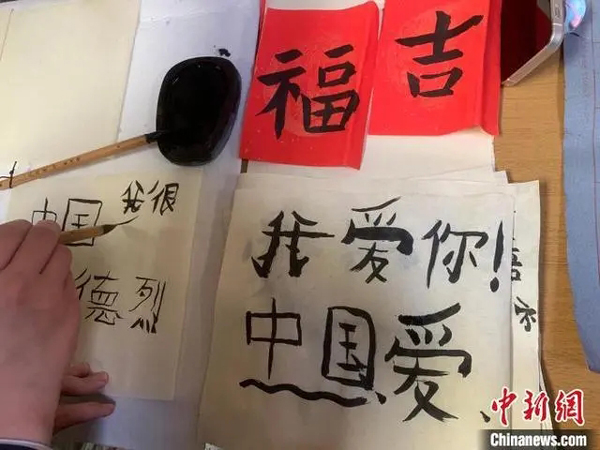 福 吉
中国 我很
德烈
我爱你!
中国爱
中新網
Chinanews.com